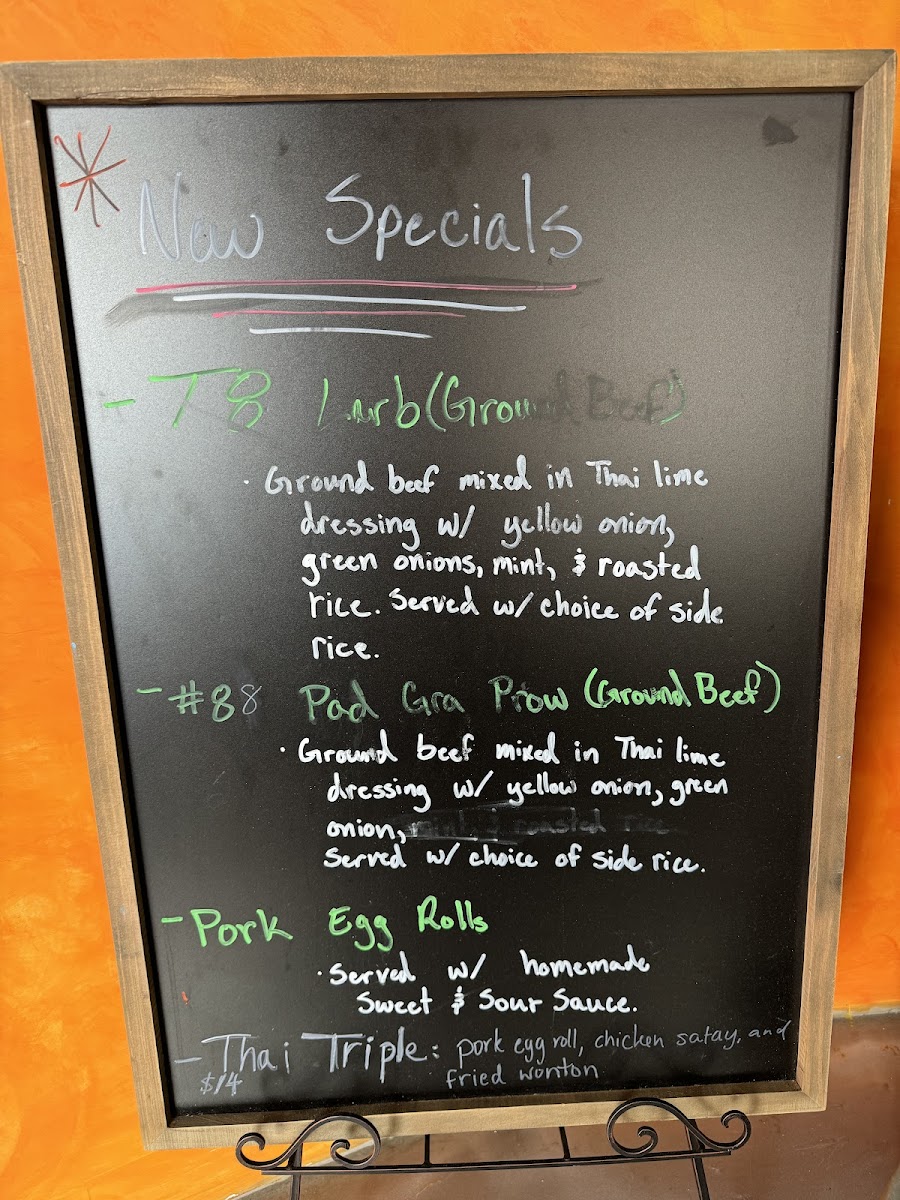 New Specials
- T8 Larb (Ground Beef)
· Ground beef mixed in Thai lime
dressing w/ yellow onion,
green onions, mint, & roasted
rice. Served w/ choice of side
rice.
- #88 Pad Gra Prow (Ground Beef)
· Ground beef mixed in Thai lime
dressing w/ yellow onion, green
onion, mint & roasted rice
Served w/ choice of side rice.
- Pork Egg Rolls
· Served w/ homemade
Sweet & Sour Sauce.
- Thai Triple: pork egg roll, chicken satay, and
$14 fried wonton